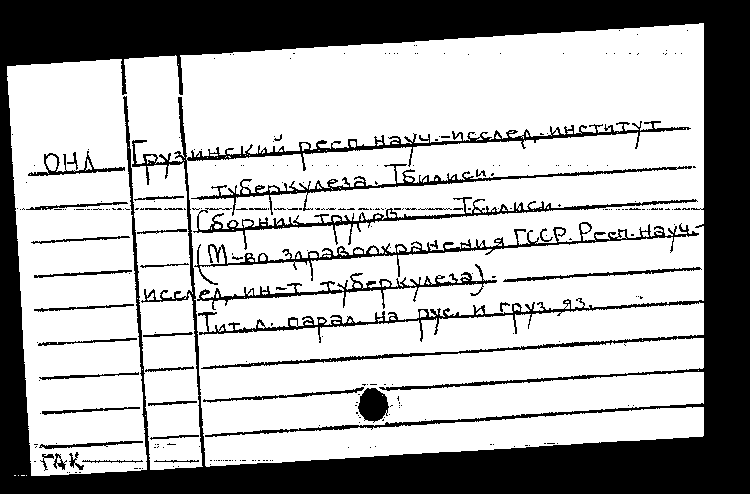 ОНЛ Грузинский респ. науч.-исслед. институт
туберкулеза. Тбилиси.
Сборник трудов. Тбилиси.
(М-во здравоохранения ГССР. Респ. науч.-
исслед. ин-т туберкулеза).
Тит. л. парал. на рус. и груз. яз.
ГАК